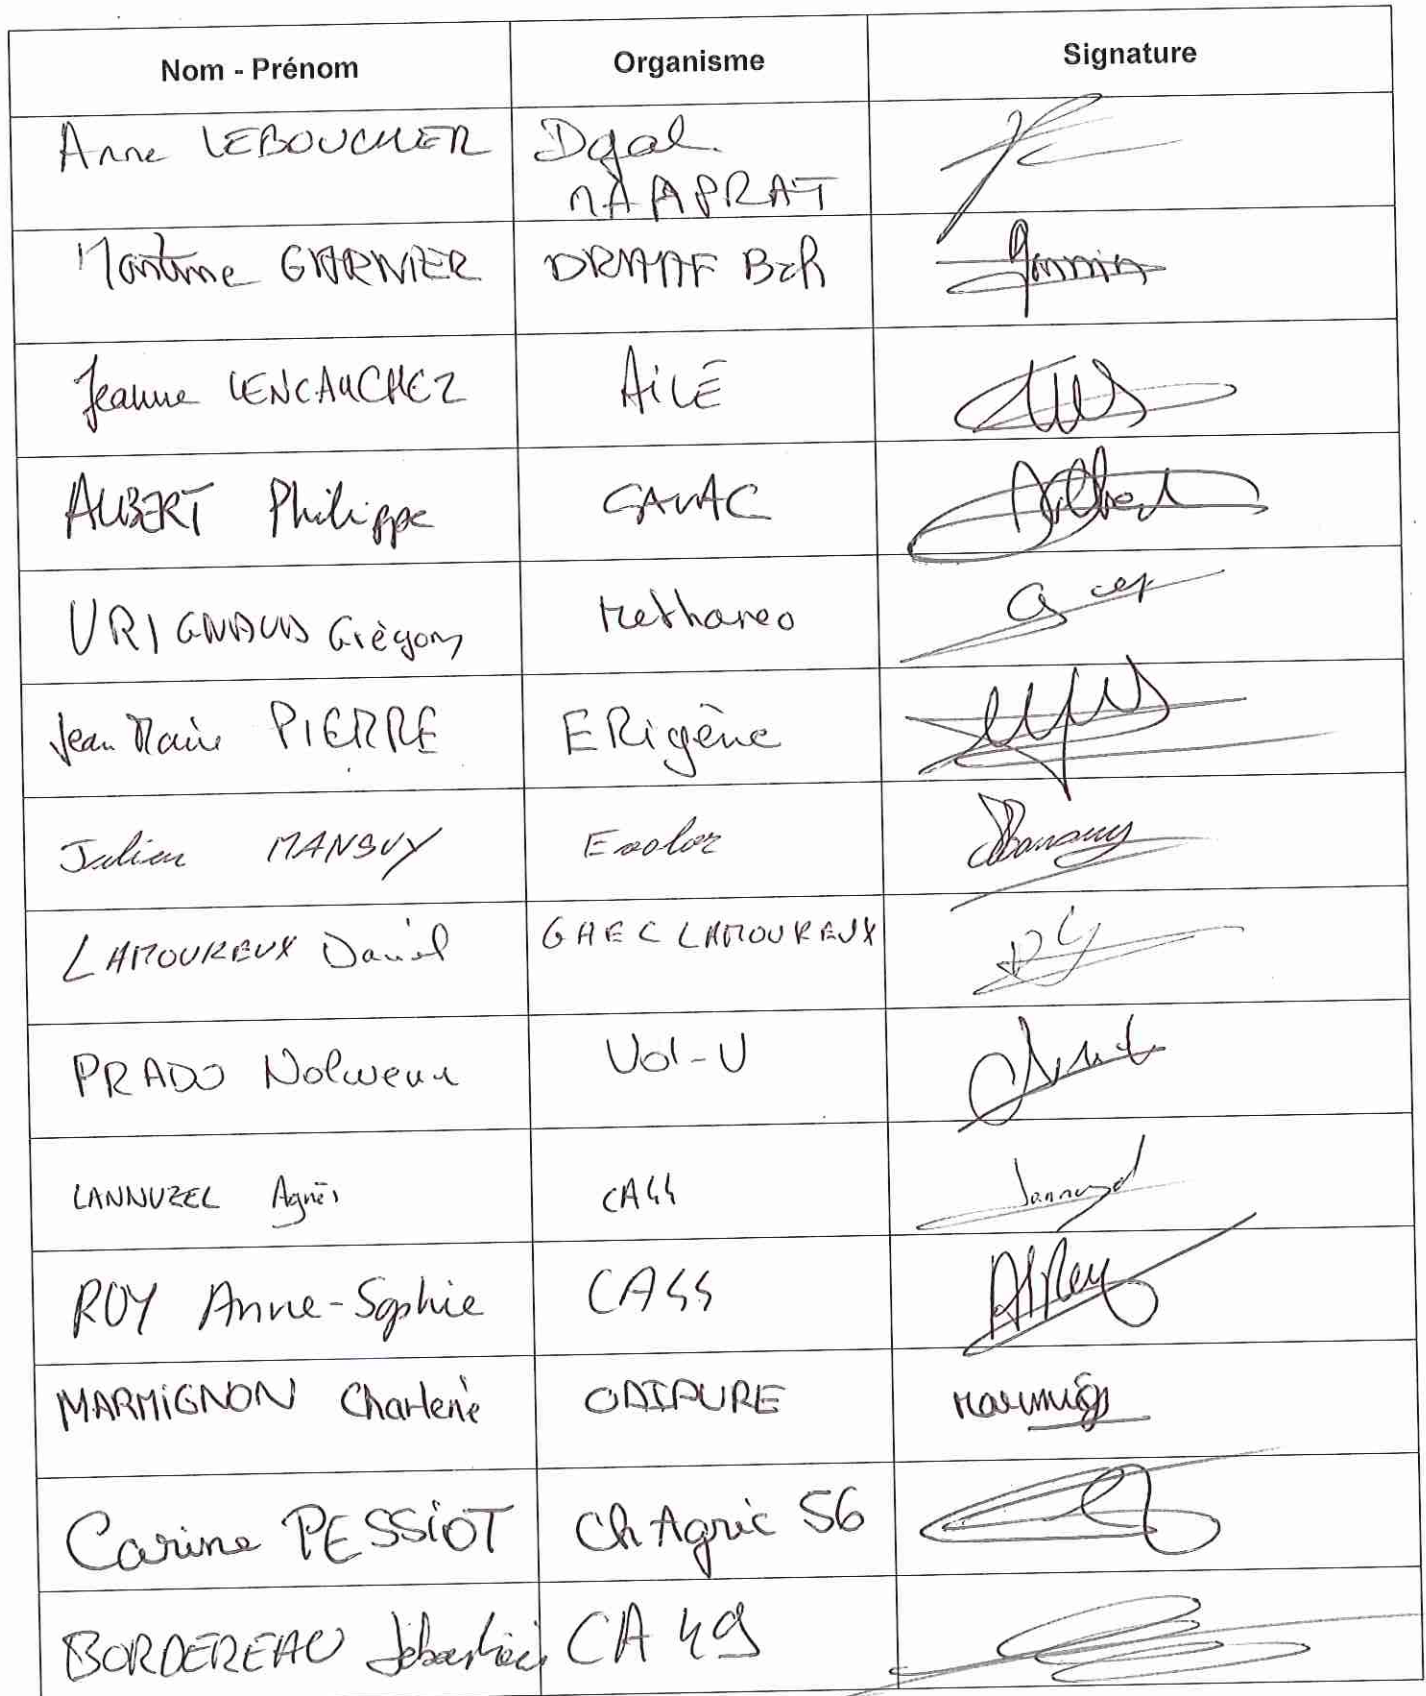 Nom - Prénom Organisme Signature
Anne LEBOUCHER Dgal
MAAPRAT
Martine GARNIER DRAAF Bzh
Jeanne LENCAUCHEZ AiLE
AUBERT Philippe CAVAC
Methaneo
Jean Marie PIERRE ERigène
Julien MANSUY Exolor
LAMOUREUX Daniel GAEC LAMOUREUX
PRADO Nolwenn Vol-V
LANNUZEL Agnès CA44 Lannuzel
ROY Anne-Sophie CA44
MARMiGNON Charlène ODIPURE
Carine PESSiOT Ch Agric 56
BORDEREAU Sébastien CA 49